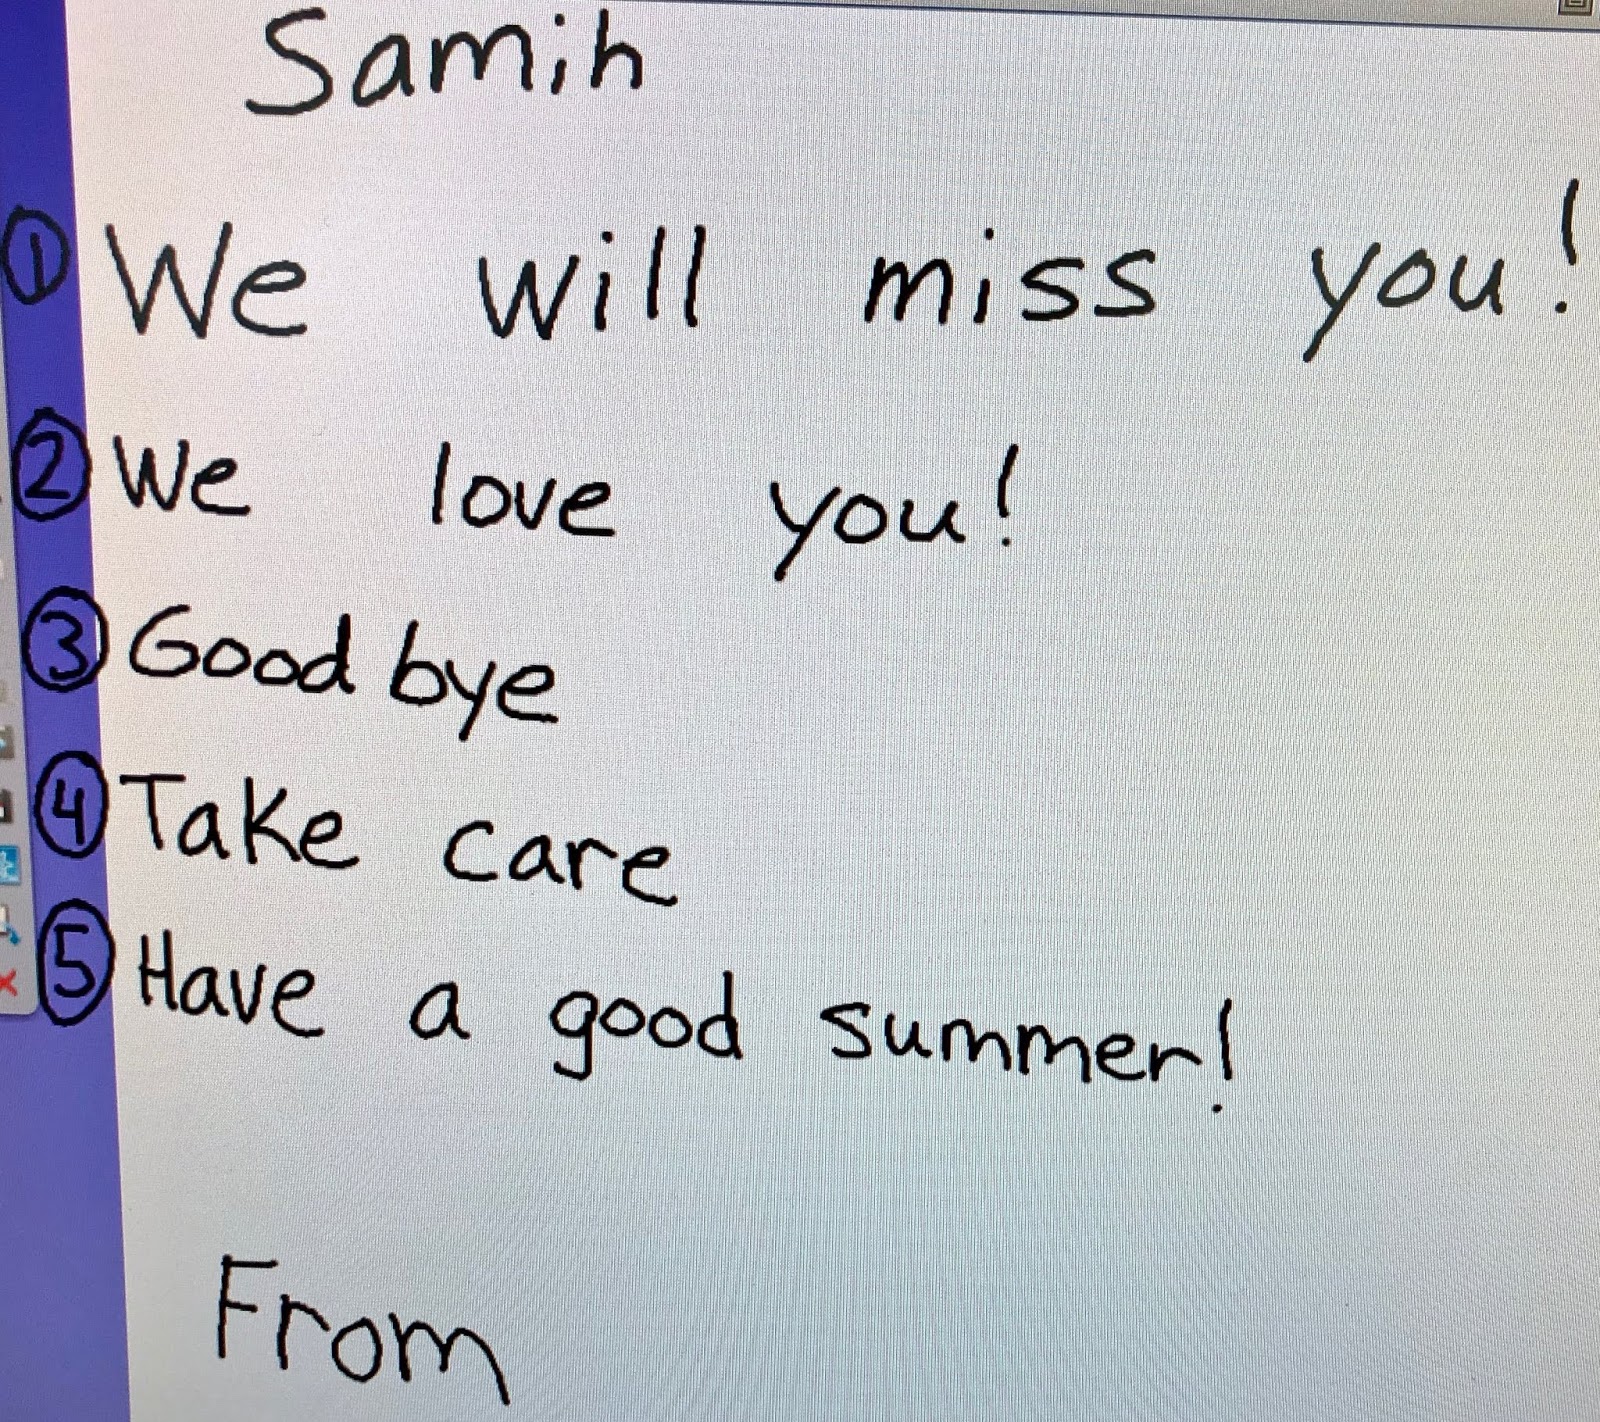 Samih
① We will miss you!
② We love you!
③ Good bye
④ Take care
⑤ Have a good summer!
From